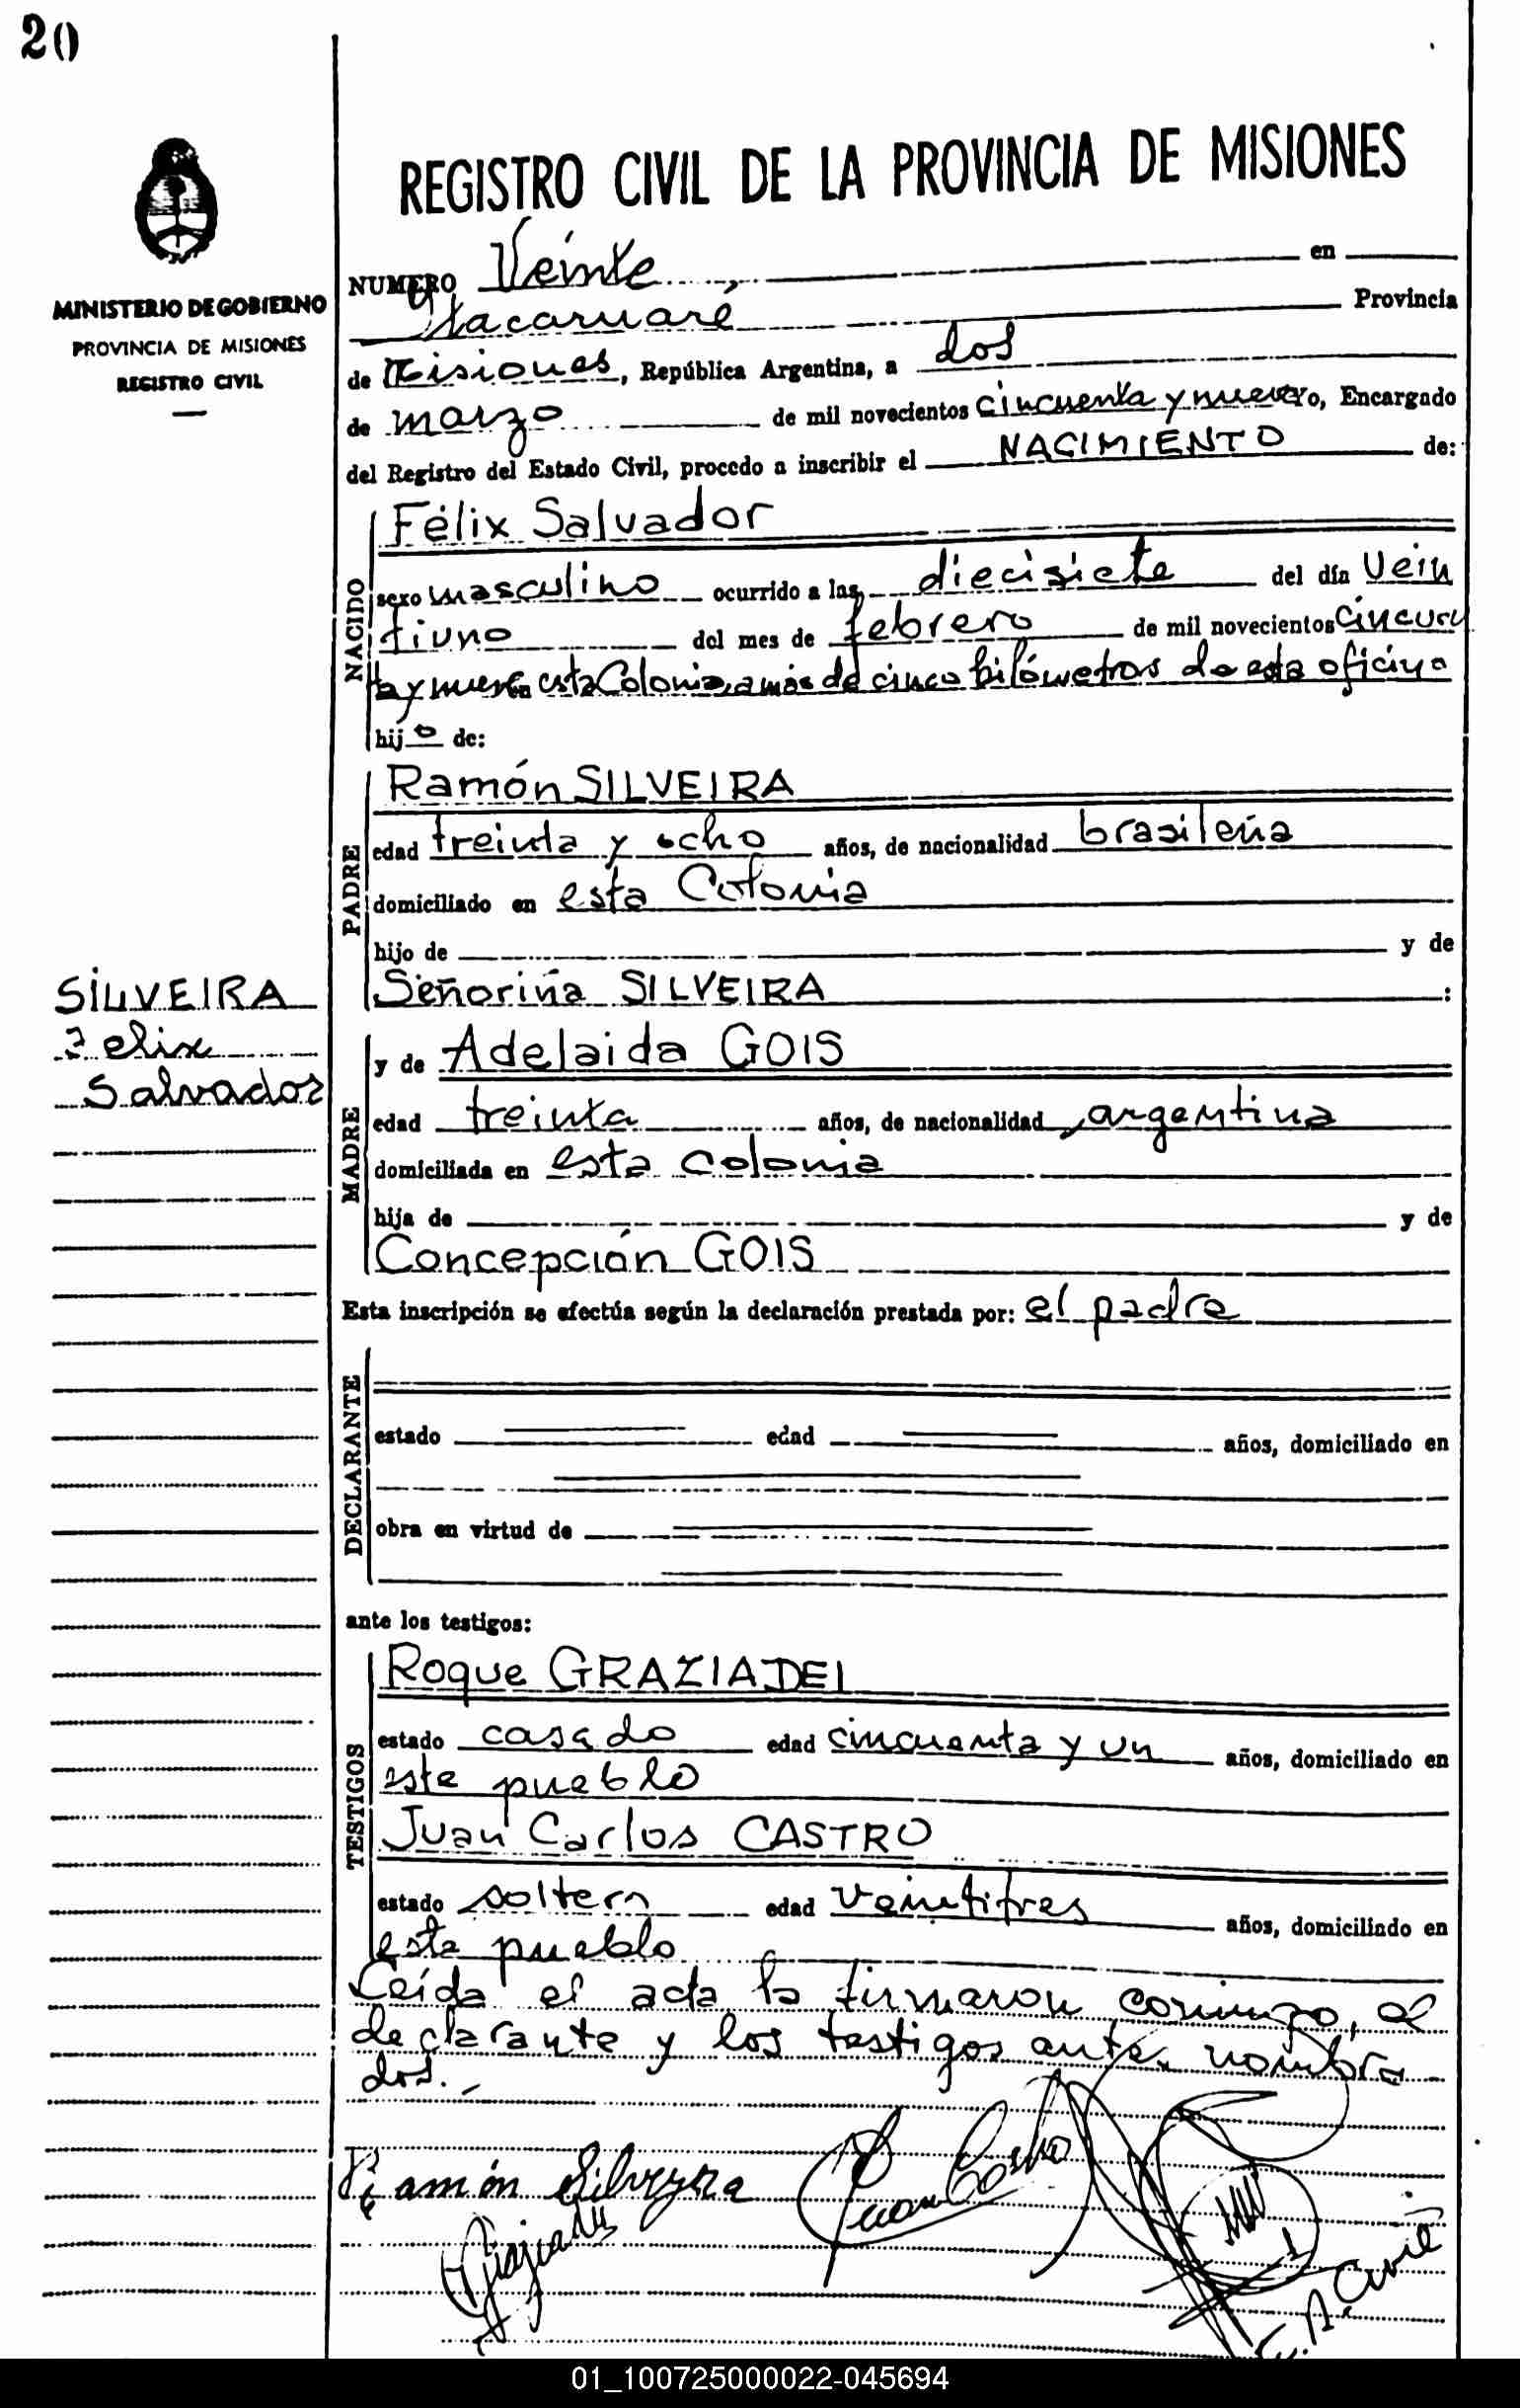 20
MINISTERIO DE GOBIERNO
PROVINCIA DE MISIONES
REGISTRO CIVIL
SILVEIRA
Felix
Salvador
REGISTRO CIVIL DE LA PROVINCIA DE MISIONES
NUMERO Veinte en
Itacaruaré Provincia
de Misiones, República Argentina, a dos
de marzo de mil novecientos cincuenta y nueve yo, Encargado
del Registro del Estado Civil, procedo a inscribir el NACIMIENTO de:
NACIDO
Félix Salvador
sexo masculino ocurrido a las diecisiete del día vein
tiuno del mes de febrero de mil novecientos cincuen
ta y nueve en esta Colonia, a más de cinco kilómetros de esta oficina
hijo de:
PADRE
Ramón SILVEIRA
edad treinta y ocho años, de nacionalidad brasileña
domiciliado en esta Colonia
hijo de y de
Señoriña SILVEIRA :
MADRE
y de Adelaida GOIS
edad treinta años, de nacionalidad argentina
domiciliada en esta colonia
hija de y de
Concepción GOIS
Esta inscripción se efectúa según la declaración prestada por: el padre
DECLARANTE
estado edad años, domiciliado en
obra en virtud de
ante los testigos:
TESTIGOS
Roque GRAZIADEI
estado casado edad cincuenta y un años, domiciliado en
este pueblo
Juan Carlos CASTRO
estado soltero edad veintitres años, domiciliado en
este pueblo
Leída el acta la firmaron conmigo, el
declarante y los testigos antes nombra
dos.-
Ramón Silveyra Juan Castro
Graziadei
E. R. Civil
01_100725000022-045694